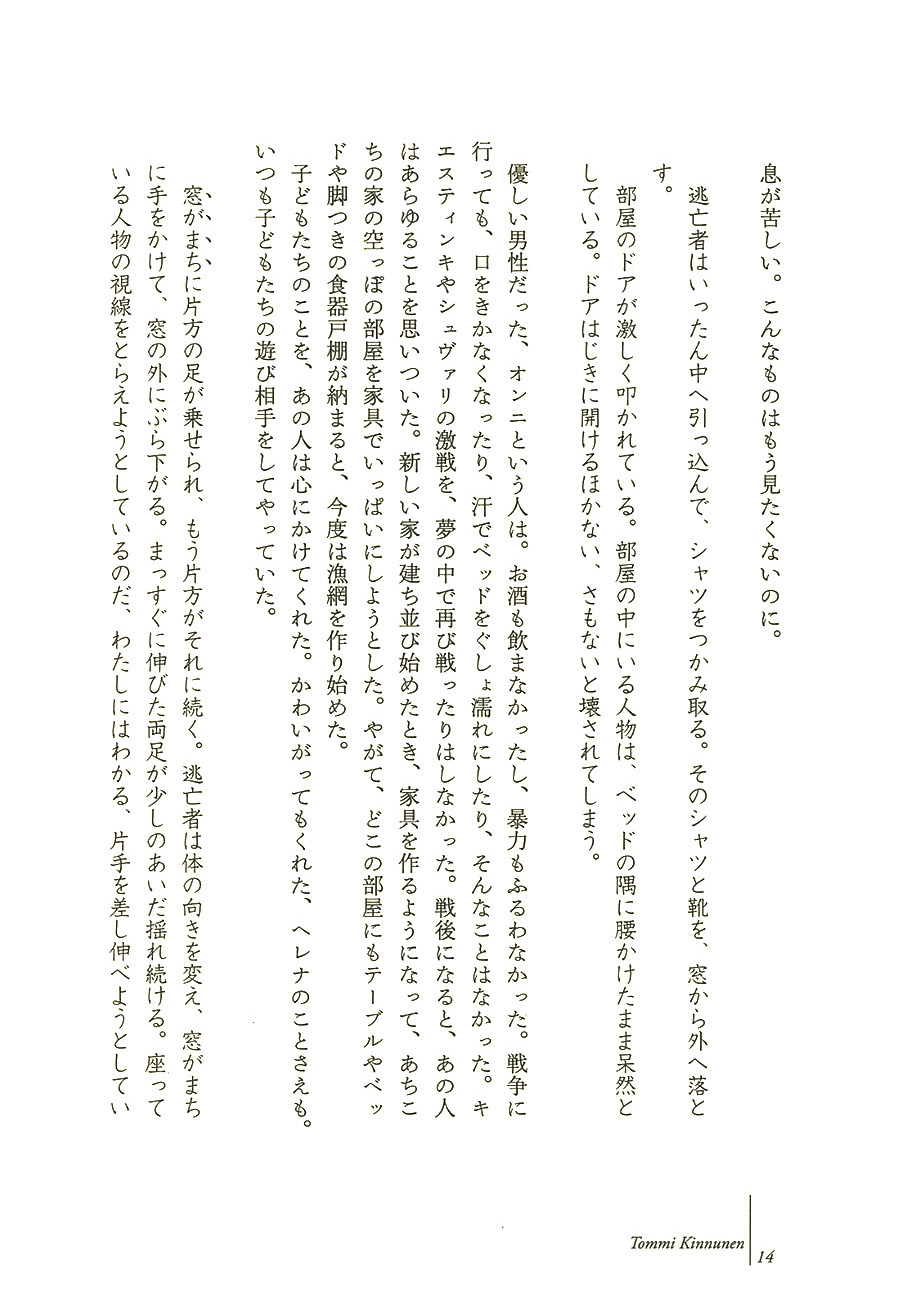 息が苦しい。こんなものはもう見たくないのに。
逃亡者はいったん中へ引っ込んで、シャツをつかみ取る。そのシャツと靴を、窓から外へ落と
す。
部屋のドアが激しく叩かれている。部屋の中にいる人物は、ベッドの隅に腰かけたまま呆然と
している。ドアはじきに開けるほかない、さもないと壊されてしまう。
優しい男性だった、オンニという人は。お酒も飲まなかったし、暴力もふるわなかった。戦争に
行っても、口をきかなくなったり、汗でベッドをぐしょ濡れにしたり、そんなことはなかった。キ
エスティンキやシュヴァリの激戦を、夢の中で再び戦ったりはしなかった。戦後になると、あの人
はあらゆることを思いついた。新しい家が建ち並び始めたとき、家具を作るようになって、あちこ
ちの家の空っぽの部屋を家具でいっぱいにしようとした。やがて、どこの部屋にもテーブルやベッ
ドや脚つきの食器戸棚が納まると、今度は漁網を作り始めた。
子どもたちのことを、あの人は心にかけてくれた。かわいがってもくれた、ヘレナのことさえも。
いつも子どもたちの遊び相手をしてやっていた。
窓がまちに片方の足が乗せられ、もう片方がそれに続く。逃亡者は体の向きを変え、窓がまち
に手をかけて、窓の外にぶら下がる。まっすぐに伸びた両足が少しのあいだ揺れ続ける。座って
いる人物の視線をとらえようとしているのだ、わたしにはわかる、片手を差し伸べようとしてい
Tommi Kinnunen
14